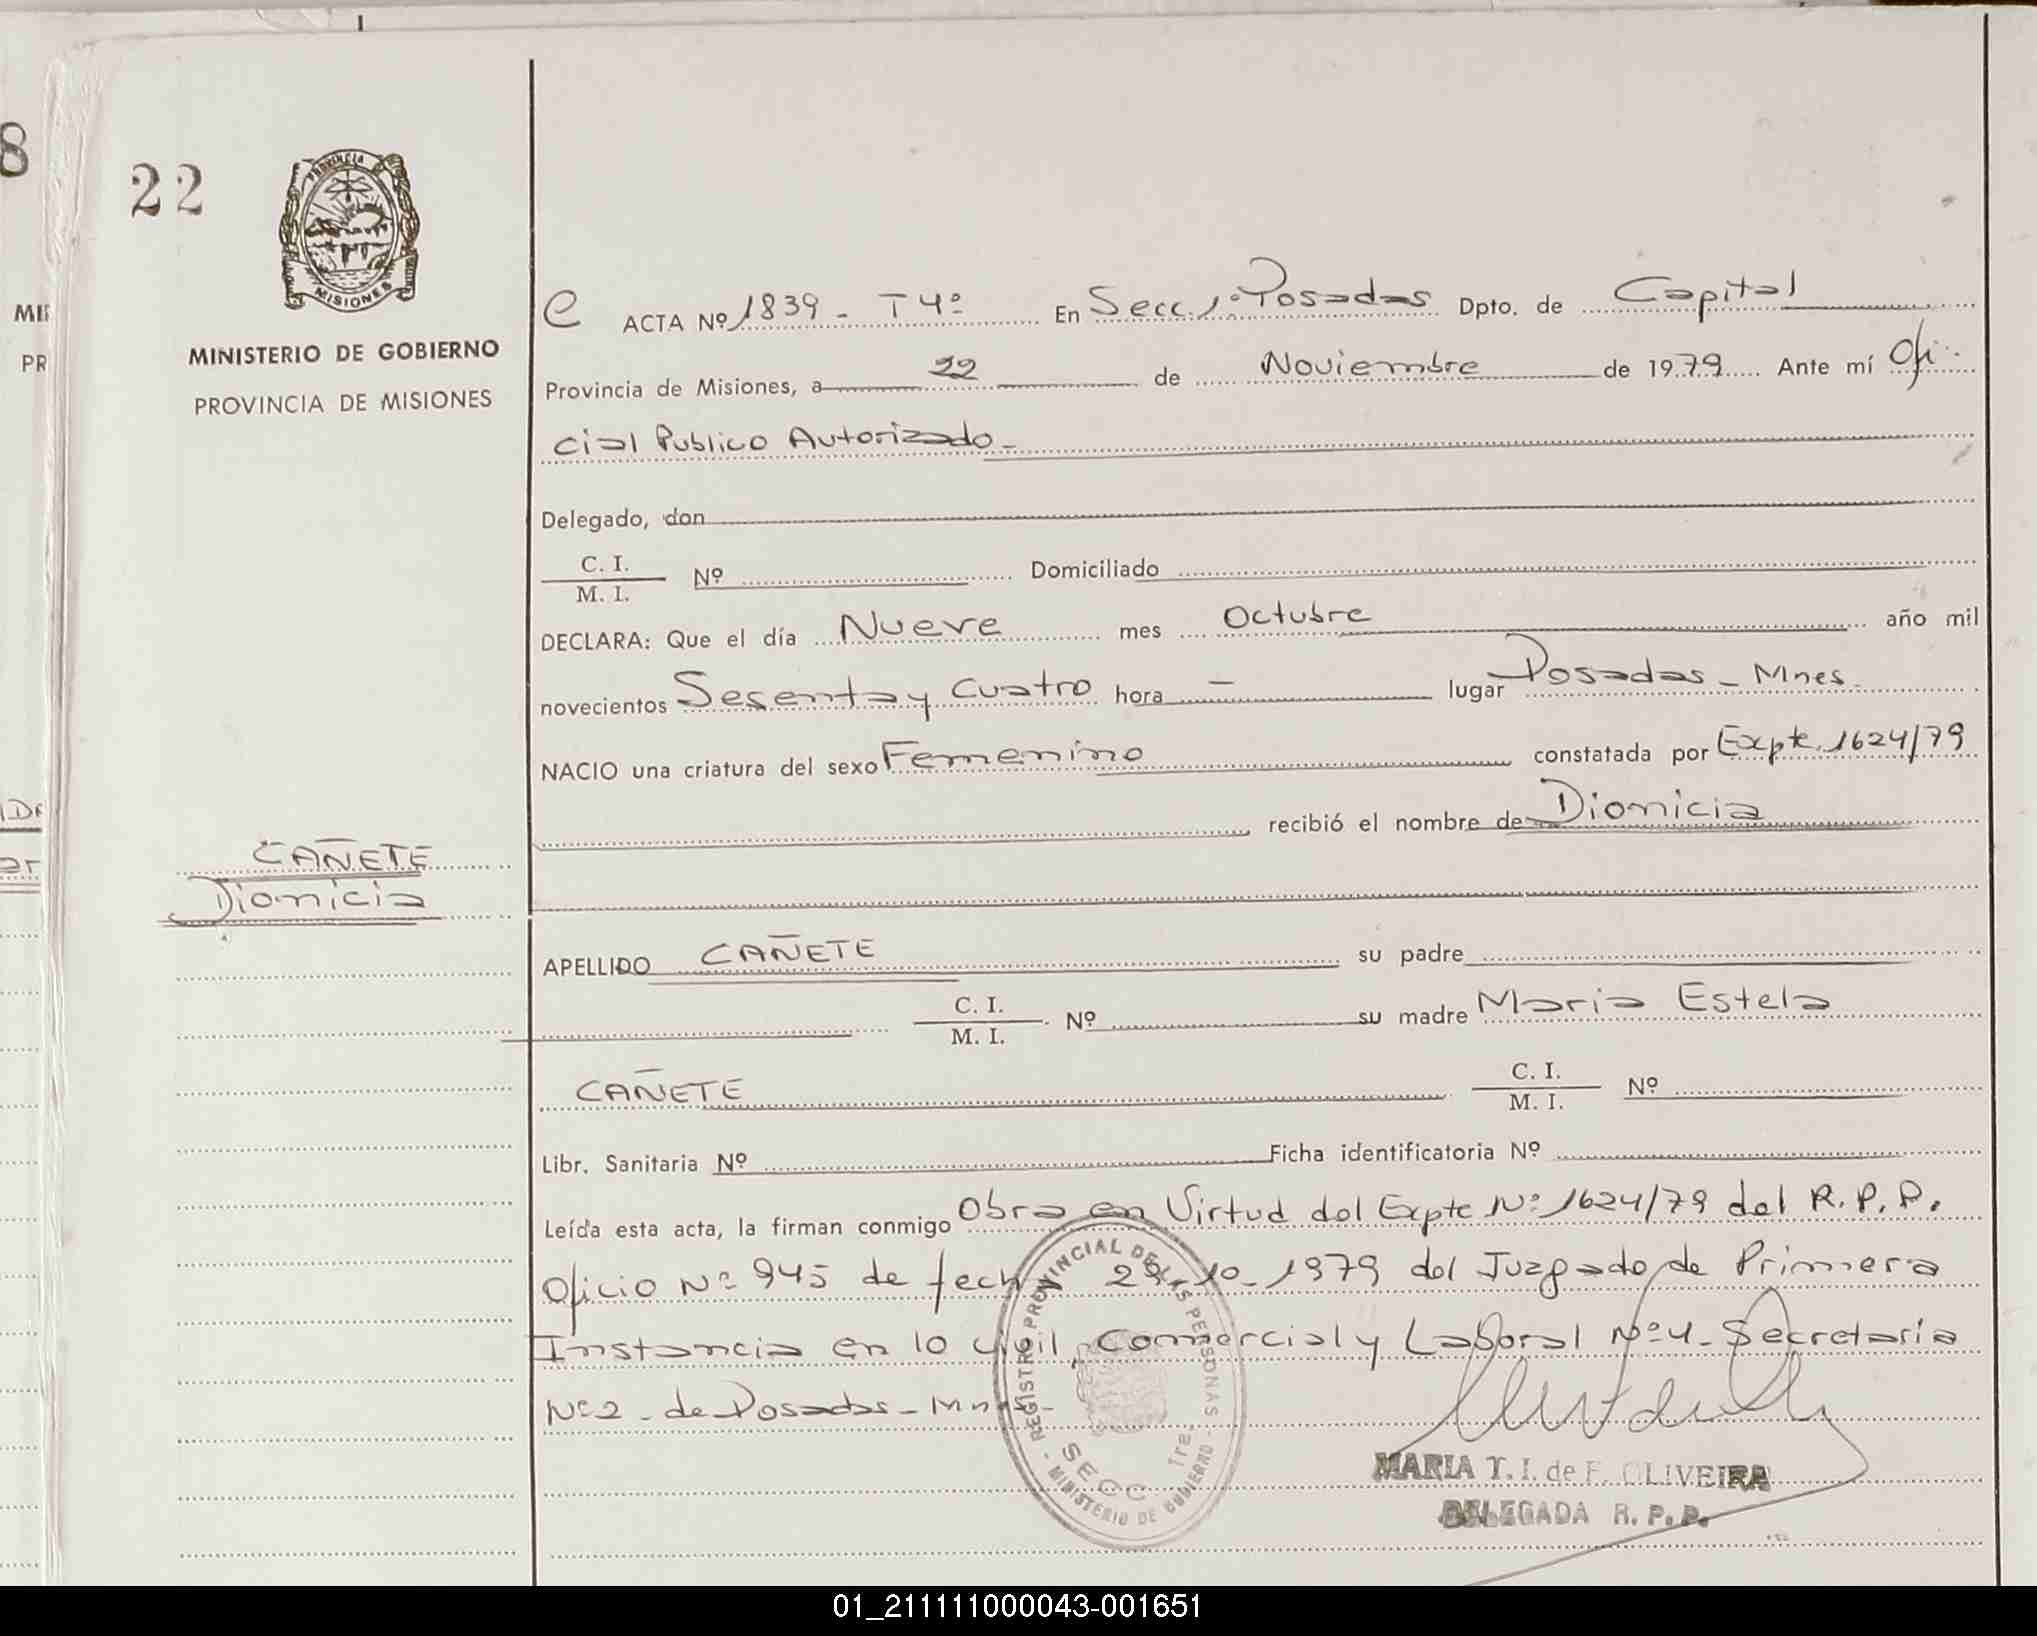 8
22
PROVINCIA
MISIONES
MINISTERIO DE GOBIERNO
PROVINCIA DE MISIONES
CAÑETE
Dionicia
e ACTA Nº 1839 - T 4º En Secc. 1º Posadas Dpto. de Capital
Provincia de Misiones, a 22 de Noviembre de 1979 Ante mí Ofi-
cial Publico Autorizado -
Delegado, don
C. I.
M. I. Nº Domiciliado
DECLARA: Que el día Nueve mes Octubre año mil
novecientos Sesenta y Cuatro hora - lugar Posadas - Mnes.
NACIO una criatura del sexo Femenino constatada por Expte. 1624/79
recibió el nombre de Dionicia
APELLIDO CAÑETE su padre
C. I.
M. I. Nº su madre Maria Estela
CAÑETE C. I.
M. I. Nº
Libr. Sanitaria Nº Ficha identificatoria Nº
Leída esta acta, la firman conmigo Obra en Virtud del Expte Nº 1624/79 del R.P.P.
Oficio Nº 945 de fecha 29-10-1979 del Juzgado de Primera
Instancia en lo Civil, Comercial y Laboral Nº 4 - Secretaria
Nº 2 - de Posadas - Mnes -
REGISTRO PROVINCIAL DE LAS PERSONAS
SECC 1re.
MINISTERIO DE GOBIERNO
MARIA T. I. de F. OLIVEIRA
DELEGADA R. P. P.
01_211111000043-001651